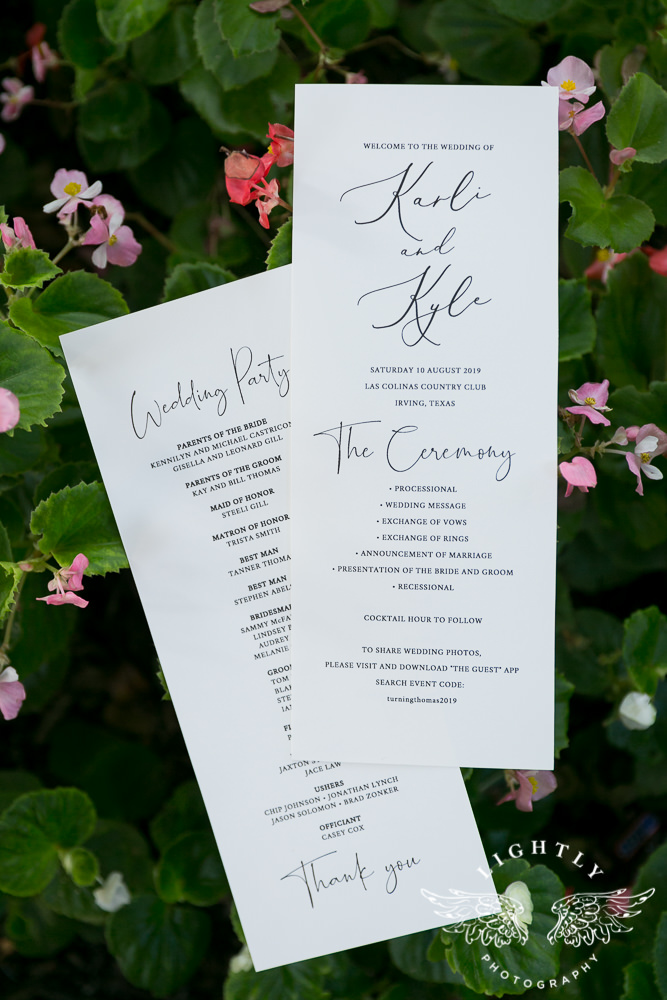 WELCOME TO THE WEDDING OF
Karli
and
Kyle
SATURDAY 10 AUGUST 2019
LAS COLINAS COUNTRY CLUB
IRVING, TEXAS
The Ceremony
• PROCESSIONAL
• WEDDING MESSAGE
• EXCHANGE OF VOWS
• EXCHANGE OF RINGS
• ANNOUNCEMENT OF MARRIAGE
• PRESENTATION OF THE BRIDE AND GROOM
• RECESSIONAL
COCKTAIL HOUR TO FOLLOW
TO SHARE WEDDING PHOTOS,
PLEASE VISIT AND DOWNLOAD "THE GUEST" APP
SEARCH EVENT CODE:
turningthomas2019
Wedding Party
PARENTS OF THE BRIDE
KENNILYN AND MICHAEL CASTRICON
GISELLA AND LEONARD GILL
PARENTS OF THE GROOM
KAY AND BILL THOMAS
MAID OF HONOR
STEELI GILL
MATRON OF HONOR
TRISTA SMITH
BEST MAN
TANNER THOMA
BEST MAN
STEPHEN ABEL
BRIDESMA
SAMMY McFA
LINDSEY
AUDREY
MELANIE
GROO
TOM
BLA
STE
IA
JAXTON
JACE LAW
USHERS
CHIP JOHNSON • JONATHAN LYNCH
JASON SOLOMON • BRAD ZONKER
OFFICIANT
CASEY COX
Thank you
LIGHTLY
PHOTOGRAPHY